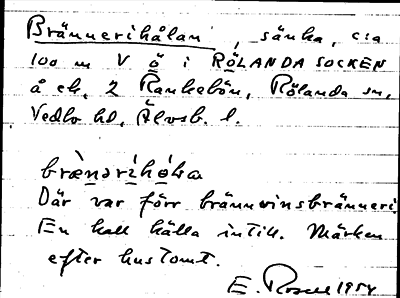 Brännerihålan, sänka, c:a
100 m V ö i RÖLANDA SOCKEN
å ek. 2 Rankebön, Rölanda sn,
Vedbo hd, Älvsb. l.
Där var förr brännvinsbränneri.
En kall källa intill. Märken
efter hustomt.
E. Rosell 1954